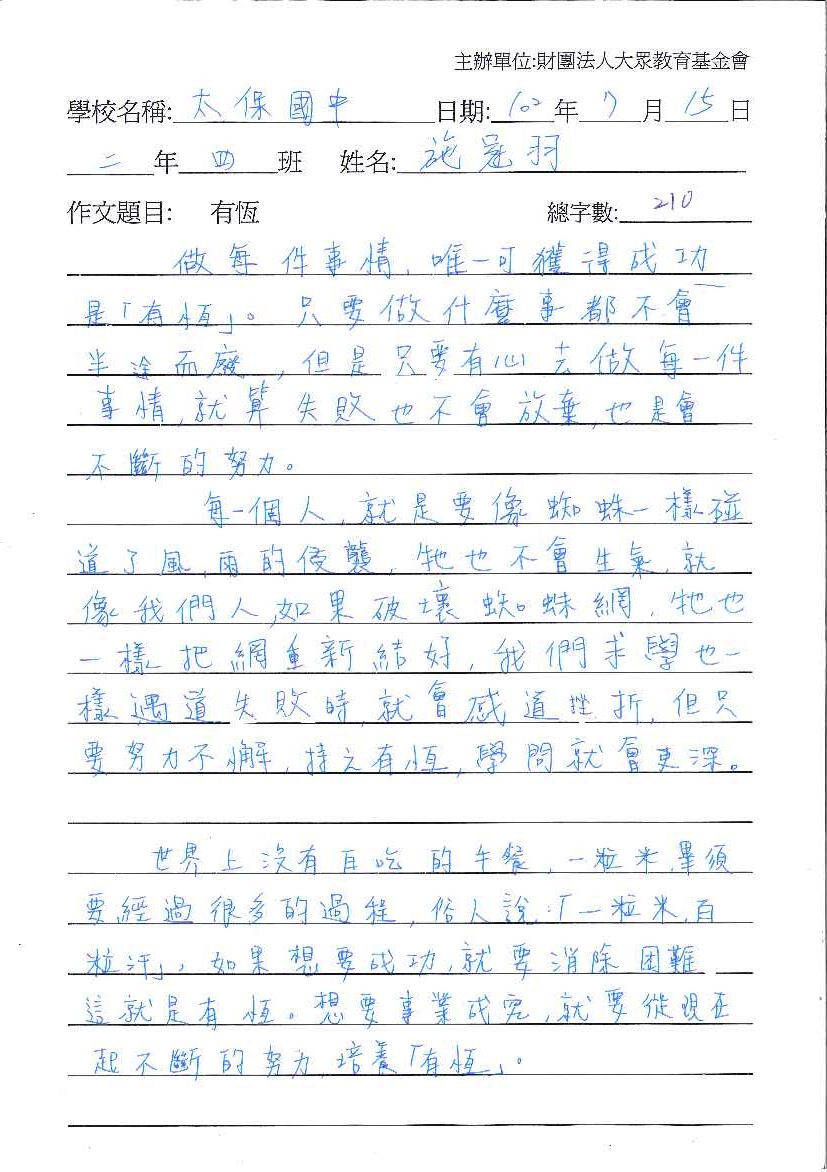 主辦單位:財團法人大眾教育基金會
學校名稱: 太保國中 日期: 102 年 7 月 15 日
二 年 四 班 姓名: 施冠羽
作文題目: 有恆 總字數: 210
做每件事情,唯一可獲得成功
是「有恆」。只要做什麼事都不會
半途而廢,但是只要有心去做每一件
事情,就算失敗也不會放棄,也是會
不斷的努力。
每一個人,就是要像蜘蛛一樣碰
道了風,雨的侵襲,牠也不會生氣,就
像我們人,如果破壞蜘蛛網,牠也
一樣把網重新結好,我們求學也一
樣遇道失敗時,就會感道挫折,但只
要努力不懈,持之有恆,學問就會更深。
世界上沒有白吃的午餐,一粒米,畢須
要經過很多的過程,俗人說:「一粒米,百
粒汗」,如果想要成功,就要消除困難
這就是有恆。想要事業成,就要從現在
起不斷的努力,培養「有恆」。